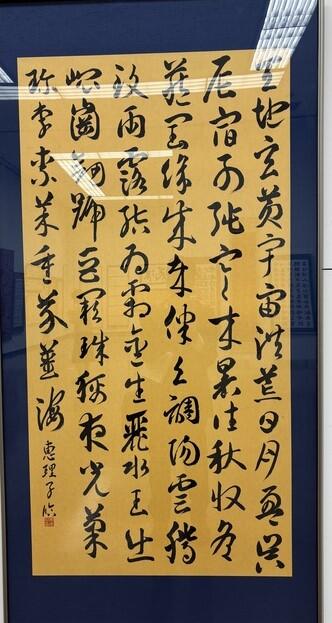 天地玄黃宇宙洪荒日月盈昃
辰宿列張寒来暑往秋収冬
蔵閏餘成歳律呂調陽雲騰
致雨露結為霜金生麗水玉出
崐崗劔號巨闕珠稱夜光菓
珍李柰菜重芥薑海
恵理子臨